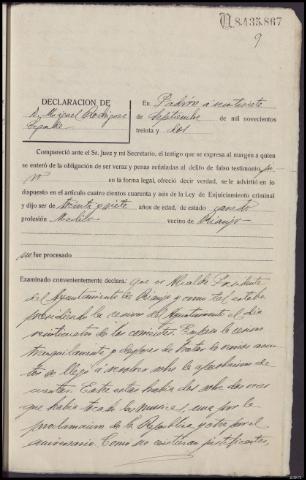 N8.435.867
9
DECLARACION DE
D. Miguel Rodríguez
En Padrón a veintisiete
de Septiembre de mil novecientos
treinta y dos
Compareció ante el Sr. Juez y mi Secretario, el testigo que se expresa al margen a quien
se enteró de la obligación de ser veraz y penas señaladas al delito de falso testimonio
en la forma legal, ofreció decir verdad, se le advirtió en lo
dispuesto en el artículo cuatro cientos cuarenta y seis de la Ley de Enjuiciamiento criminal
y dijo ser de treinta y siete años de edad, de estado casado
profesión Médico vecino de Rianjo
no fue procesado
Examinado convenientemente declara: que es Alcalde Presidente
del Ayuntamiento de Rianjo y como tal estaba
presidiendo la sesión del Ayuntamiento el día
veinticuatro de los corrientes. Empezó la sesión
tranquilamente y después de tratar de varios asun-
tos se llegó a nuestro sobre la aprobación de
cuentas. Entre estas había dos sobre dos veces
que había tocado la música, una por la
proclamación de la República y otra por el
aniversario. Como no existieran justificantes,